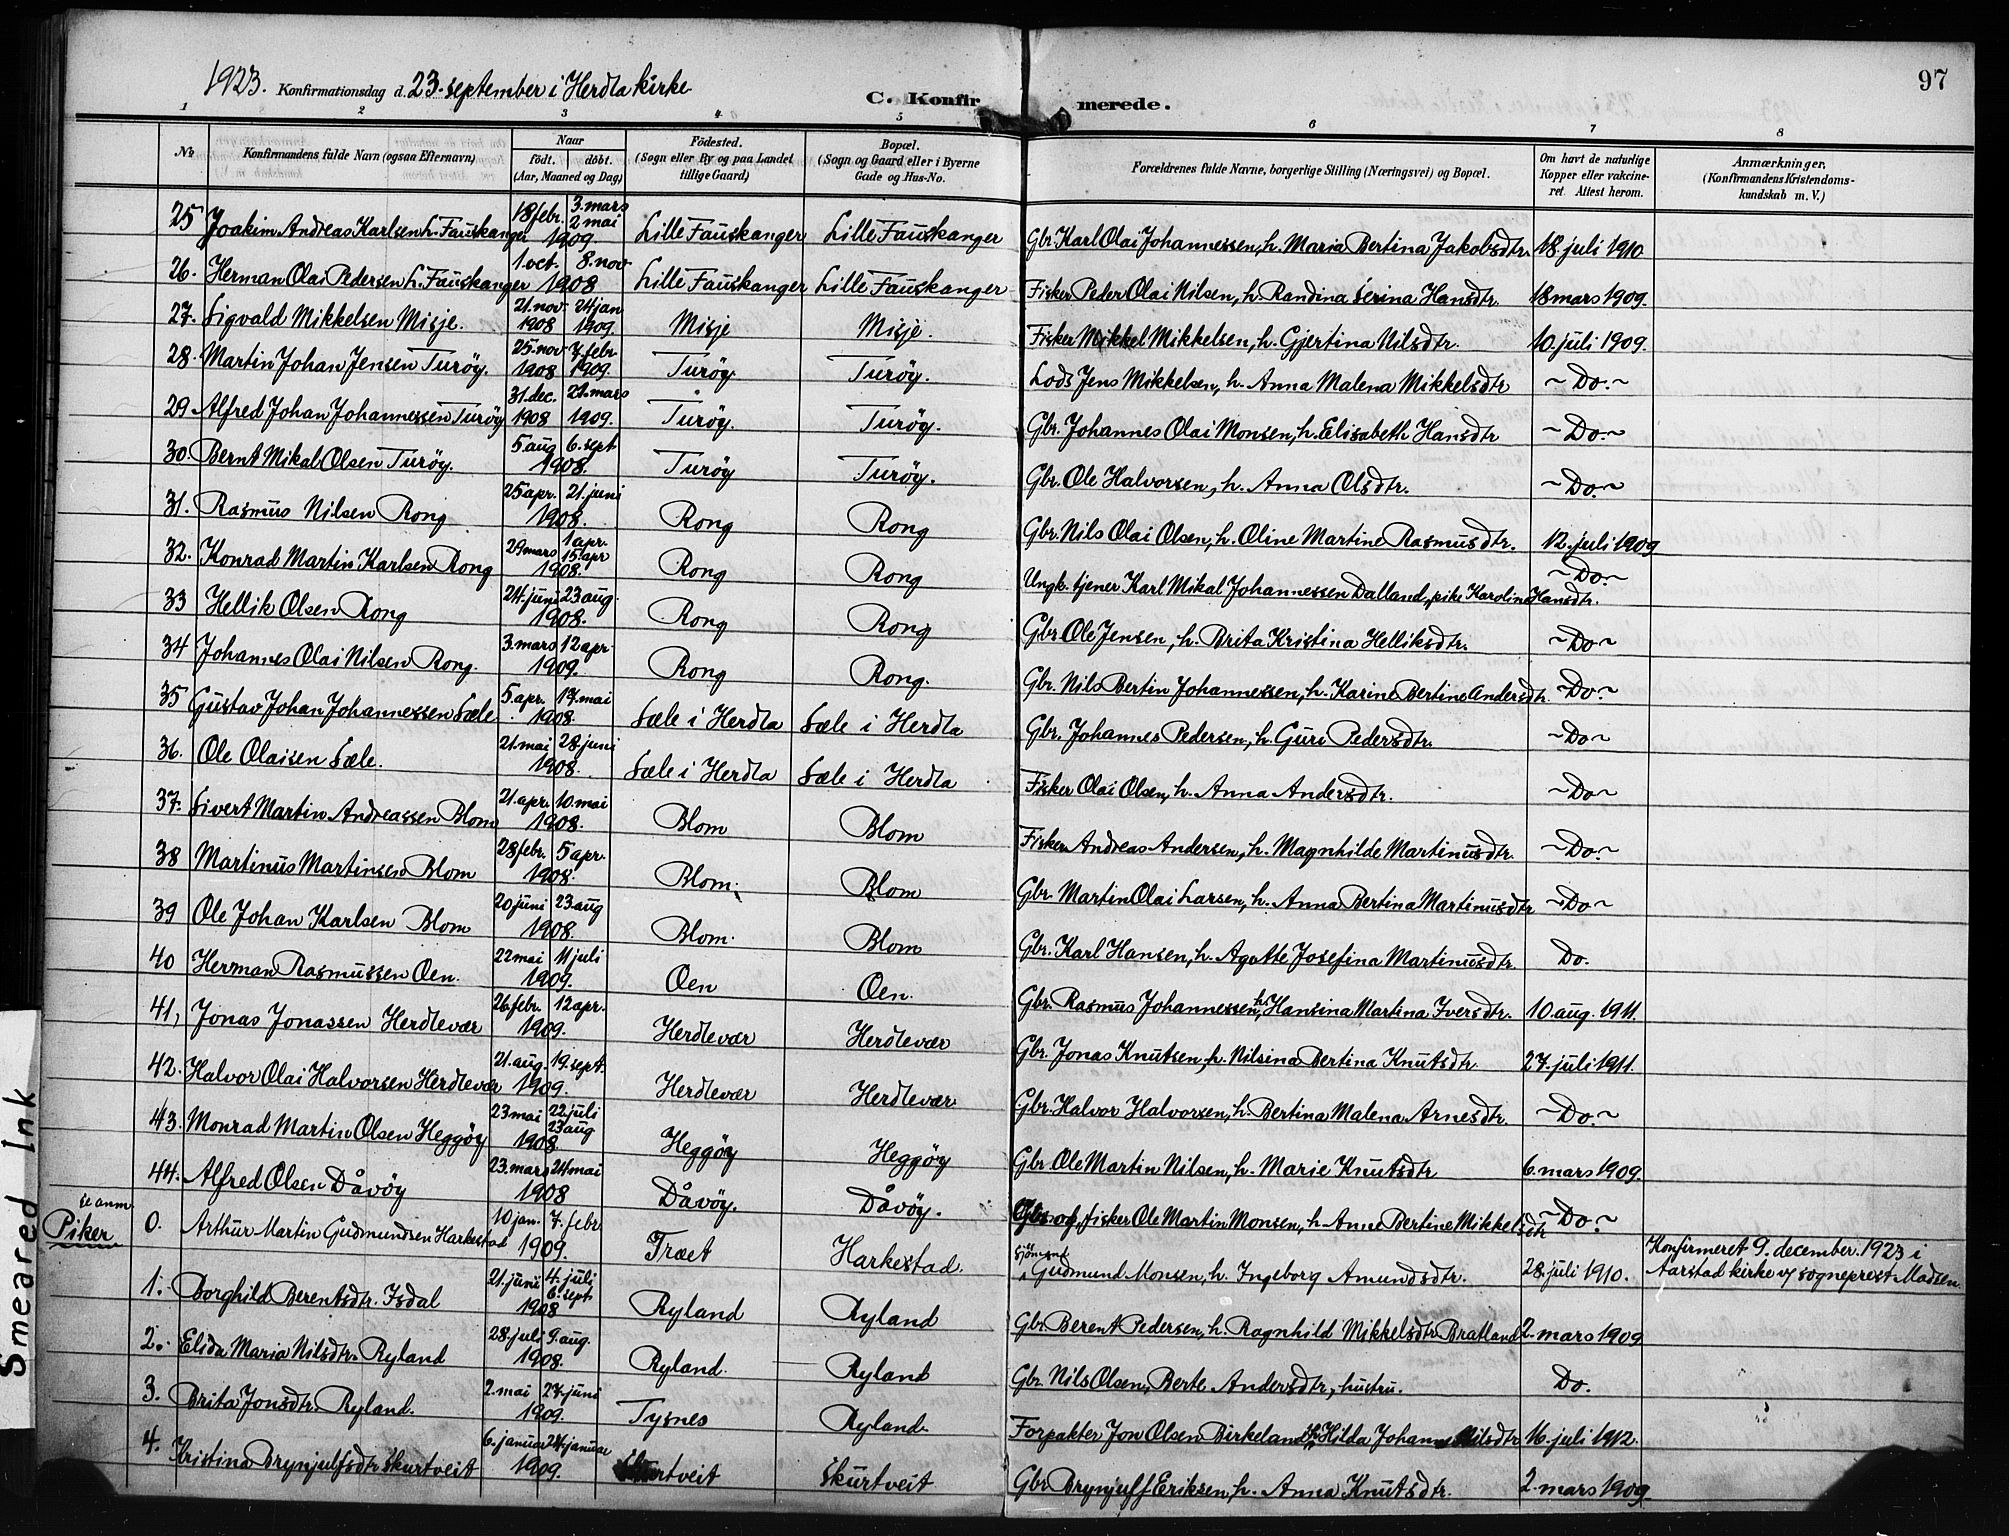 97
1923. Konfirmationsdag d. 23. september i Herdla kirke
C. Konfirmerede.
1 2 3 4 5 6 7 8
No. | Konfirmandens fulde Navn (ogsaa Efternavn) | Naar født. døbt. (Aar, Maaned og Dag) | Födested. (Sogn eller By og paa Landet tillige Gaard) | Bopæl. (Sogn og Gaard eller i Byerne Gade og Hus-No. | Forældrenes fulde Navne, borgerlige Stilling (Næringsvei) og Bopæl. | Om havt de naturlige Kopper eller vakcineret. Attest herom. | Anmærkninger, (Konfirmandens Kristendomskundskab m. V.)
25 Joakim Andreas Karlsen L. Fauskanger 18 febr. 3. mars 2 mai 1909. Lille Fauskanger Lille Fauskanger Gbr. Karl Olai Johannessen, h. Maria Bertina Jakobsdtr. 18. juli 1910.
26. Herman Olai Pedersen L. Fauskanger 1. oct. 8. nov 1908 Lille Fauskanger Lille Fauskanger Fisker Peder Olai Nilsen, h. Randina Serina Hansdtr. 18 mars 1909.
27. Sigvald Mikkelsen Misje. 21. nov. 1908 24 jan 1909. Misje Misje. Fisker Mikkel Mikkelsen, h. Gjertina Nilsdtr. 10. juli 1909.
28. Martin Johan Jensen Turöy. 25. nov 1908 7. febr. 1909. Turöy. Turöy. Lods Jens Mikkelsen, h. Anna Malena Mikkelsdtr ~Do.~
29. Alfred Johan Johannessen Turöy 31. dec. 1908 21. mars 1909. Turöy. Turöy. Gbr. Johannes Olai Monsen, h. Elisabeth Hansdtr ~Do.~
30. Bernt Mikal Olsen Turöy. 5 aug 6. sept 1908. Turöy Turöy. Gbr. Ole Halvorsen, h. Anna Olsdtr. ~Do.~
31. Rasmus Nilsen Rong 25 apr. 21. juni 1908. Rong Rong Gbr. Nils Olai Olsen, h. Oline Martine Rasmusdtr. 12. juli 1909
32. Konrad Martin Karlsen Rong 29 mars 1 apr. 15. apr 1908. Rong Rong Ungk. tjener Karl Mikal Johannessen Dalland, pike Karolina Hansdtr. ~Do.~
33 Hellik Olsen Rong 24. juni 23 aug. 1908. Rong Rong Gbr. Ole Jensen, h. Brita Kristina Helliksdtr. ~Do~
34 Johannes Olai Nilsen Rong. 3. mars 12 apr. 1909. Rong Rong. Gbr. Nils Bertin Johannessen, h. Karine Bertine Andersdtr. ~Do.~
35 Gustav Johan Johannessen Sæle 5 apr. 17. mai 1908. Sæle i Herdla Sæle i Herdla Gbr. Johannes Pedersen, h. Guri Pedersdtr. ~Do~
36. Ole Olaisen Sæle. 21. mai 28. juni 1908. Sæle i Herdla Sæle i Herdla Fisker Olai Olsen, h. Anna Andersdtr. ~Do~
37. Sivert Martin Andreassen Blom 21. apr. 10. mai 1908. Blom Blom Fisker Andreas Andersen, h. Magnhilde Martinusdtr. ~Do.~
38 Martinus Martinsen Blom 28 febr. 5 apr. 1908. Blom. Blom Gbr. Martin Olai Larsen, h. Anna Bertina Martinusdtr ~Do~
39 Ole Johan Karlsen Blom 20 juni 23 aug 1908. Blom. Blom Gbr. Karl Hansen, h. Agatte Josefina Martinusdtr. Do.
40 Herman Rasmussen Oen. 22 mai 11 juli 1909. Oen Oen. Gbr. Rasmus Johannessen, h. Hansina Martina Iversdtr. 10. aug. 1911.
41, Jonas Jonassen Herdlevær 26 febr. 12 apr. 1909. Herdlevær Herdlevær Gbr. Jonas Knutsen, h. Nilsina Bertina Knutsdtr. 27. juli 1911.
42. Halvor Olai Halvorsen Herdlevær 21. aug. 19. sept. 1909. Herdlevær Herdlevær Gbr. Halvor Halvorsen, h. Bertina Malena Arnesdtr. ~Do.~
43. Monrad Martin Olsen Heggöy 23 mai 22 juli 23 aug 1908 Heggöy Heggöy Gbr. Ole Martin Nilsen, h. Marie Knutsdtr 6. mars 1909.
44. Alfred Olsen Dåvöy 23. mars 24 mai 1908 Dåvöy. Dåvöy. Gbr. og fisker Ole Martin Monsen, h. Anne Bertine Mikkelsdtr ~Do.~
se anm 0. Arthur Martin Gudmundsen Harkestad 10 jan. 7. febr 1909. Træet Harkestad. sjömand Gudmund Monsen, h. Ingeborg Amundsdtr. 28. juli 1910. Konfirmeret 9. december. 1923 i Aarstad kirke v/ sogneprest Madsen
Piker
1. Borghild Berentsdtr. Isdal 21. juni 4. juli 6. sept 1908 Ryland Ryland Gbr. Berent Pedersen, h. Ragnhild Mikkelsdtr Bratland 2. mars 1909
2. Elida Maria Nilsdtr. Ryland 28. juli 9. aug. 1908. Ryland. Ryland Gbr. Nils Olsen, Berte Andersdtr, hustru. Do.
3. Brita Jonsdtr. Ryland. 2. mai 27. juni 1909. Tysnes Ryland. Forpakter Jon Olsen Birkeland, h. Hilda Johanne Nilsdtr 16. juli 1912.
4. Kristina Brynjulfsdtr Skurtveit 6. januar 24. januar 1909. Skurtveit Skurtveit Gbr. Brynjulf Eriksen, h. Anna Knutsdtr. 2. mars 1909.
Smeared Ink